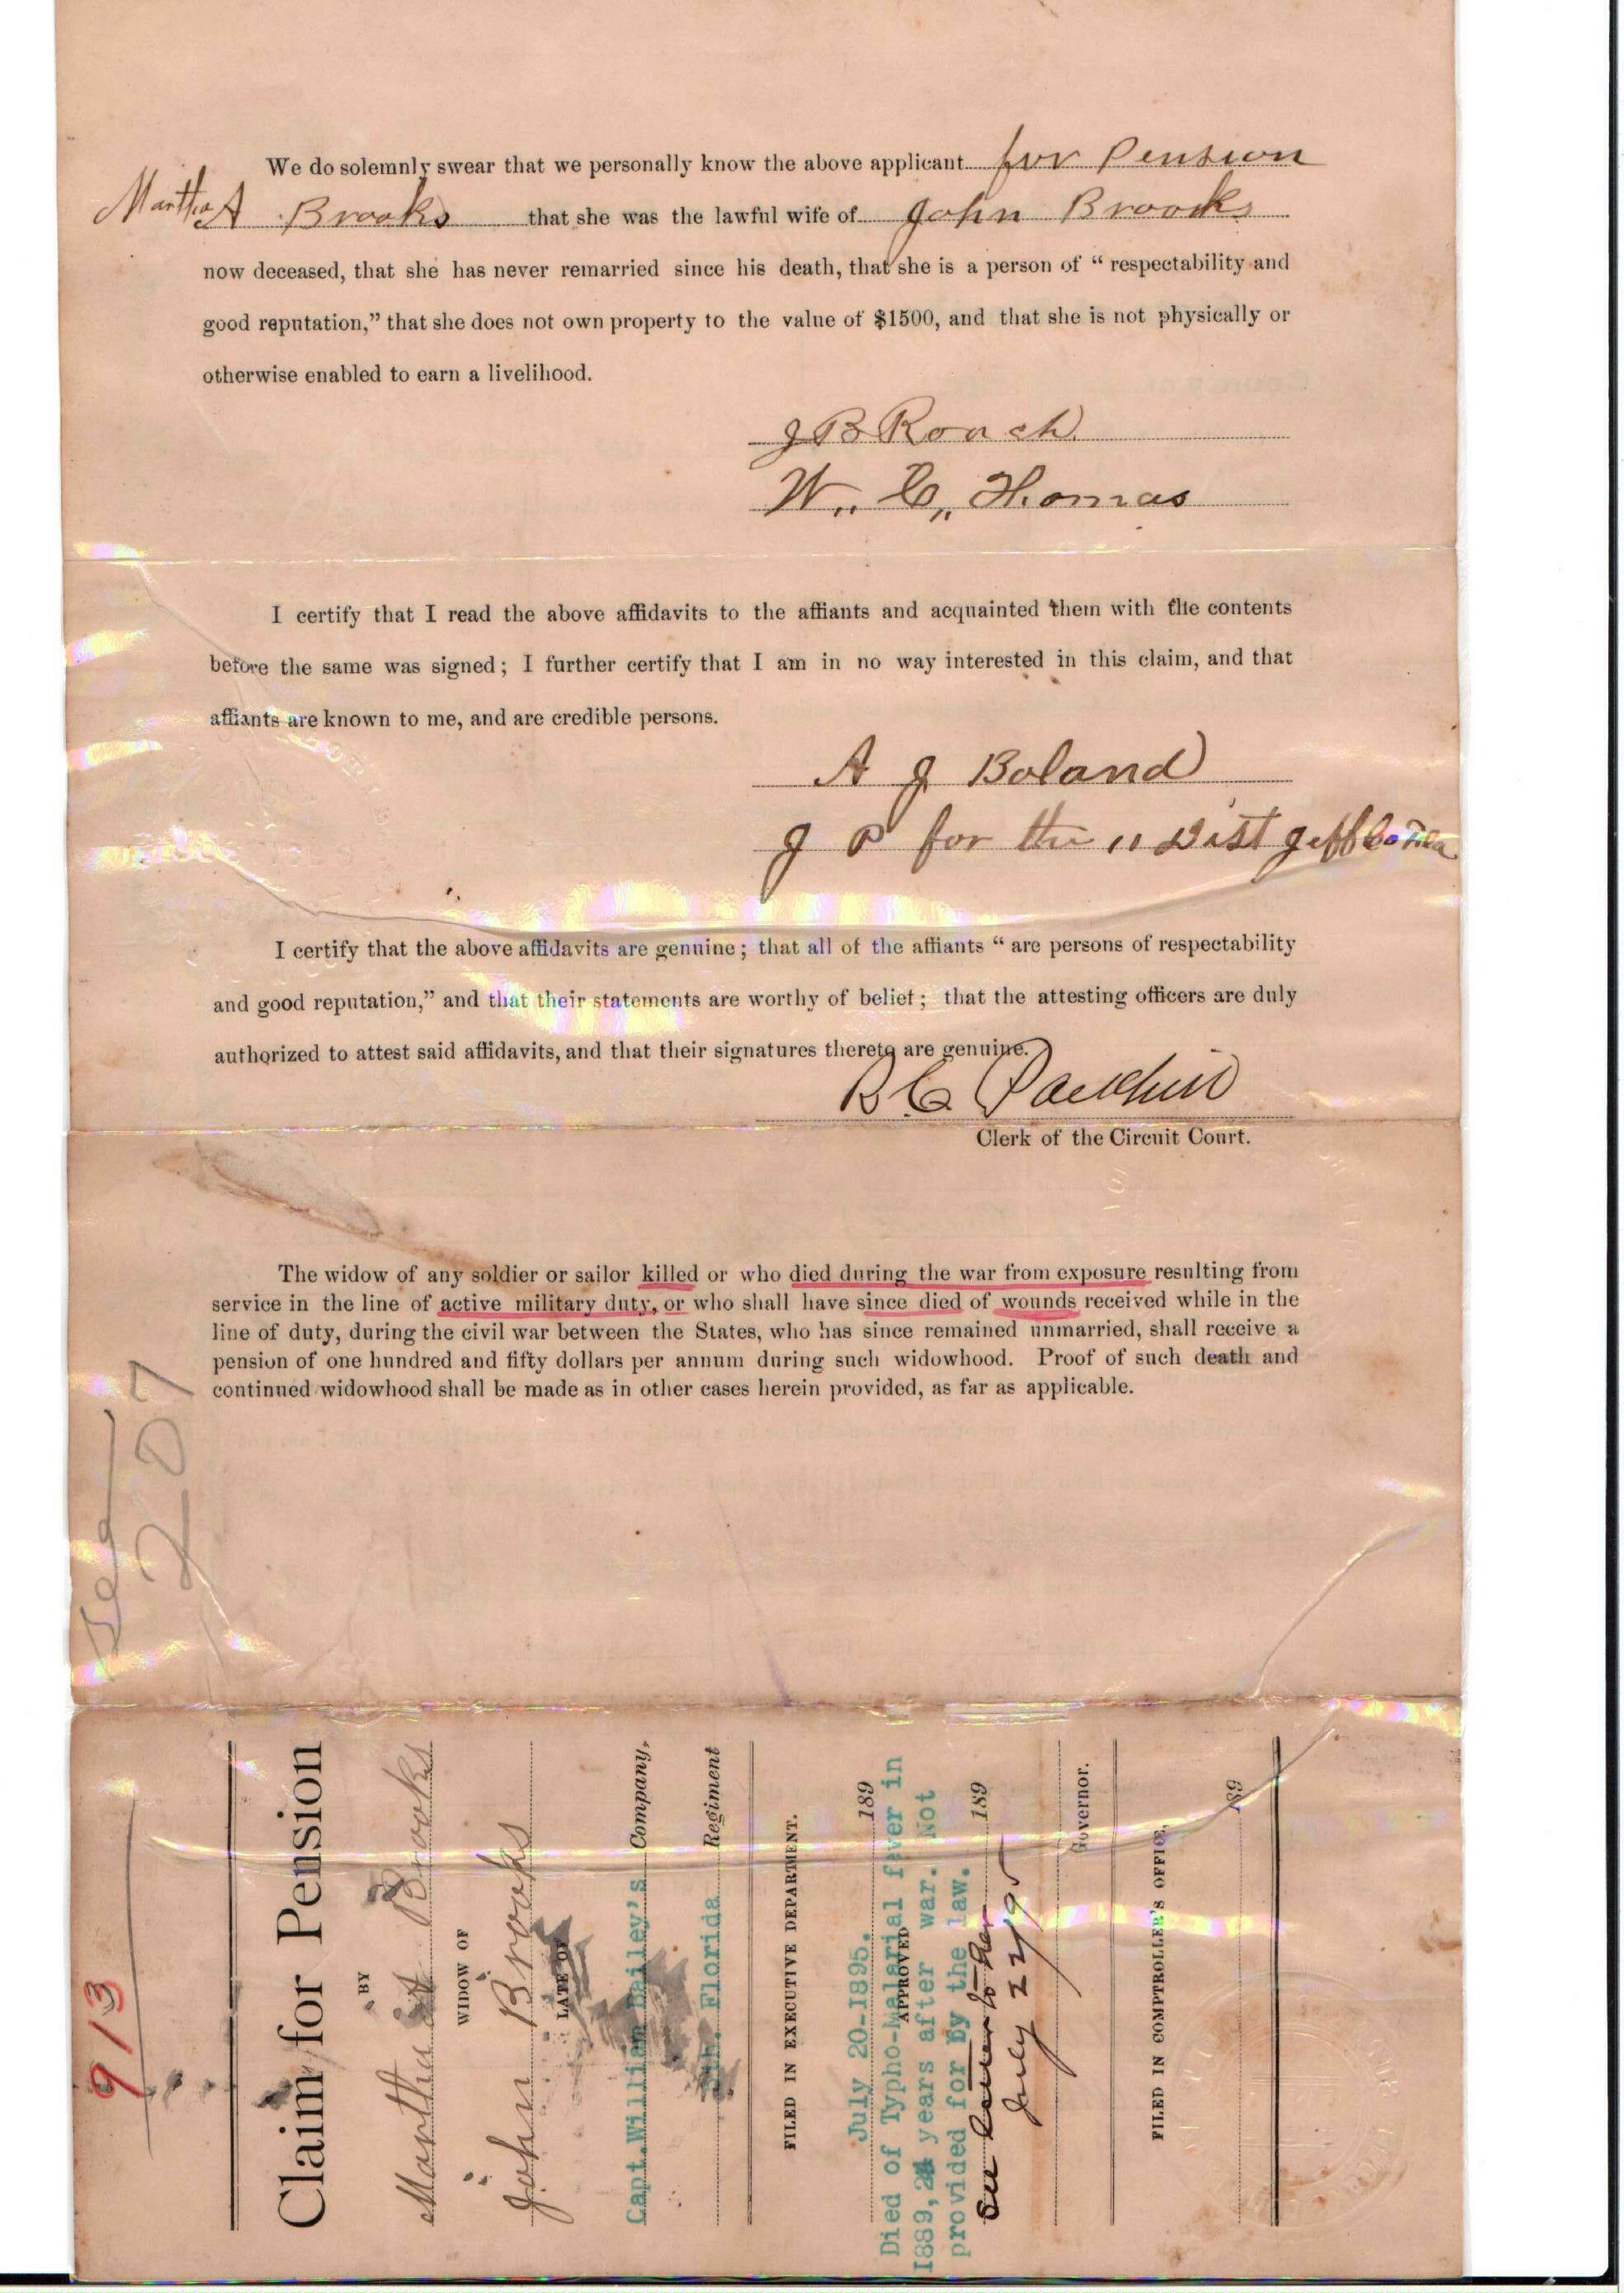 We do solemnly swear that we personally know the above applicant for Pension
Martha A Brooks that she was the lawful wife of John Brooks
now deceased, that she has never remarried since his death, that she is a person of “ respectability and
good reputation,” that she does not own property to the value of $1500, and that she is not physically or
otherwise enabled to earn a livelihood.
J B Roach
W. C. Thomas
I certify that I read the above affidavits to the affiants and acquainted them with the contents
before the same was signed; I further certify that I am in no way interested in this claim, and that
affiants are known to me, and are credible persons.
A J Boland
J P for the 11 Dist Jeff Co Fla
I certify that the above affidavits are genuine; that all of the affiants “ are persons of respectability
and good reputation,” and that their statements are worthy of belief; that the attesting officers are duly
authorized to attest said affidavits, and that their signatures thereto are genuine.
R C
Clerk of the Circuit Court.
The widow of any soldier or sailor killed or who died during the war from exposure resulting from
service in the line of active military duty, or who shall have since died of wounds received while in the
line of duty, during the civil war between the States, who has since remained unmarried, shall receive a
pension of one hundred and fifty dollars per annum during such widowhood. Proof of such death and
continued widowhood shall be made as in other cases herein provided, as far as applicable.
207
913
Claim for Pension
BY
Martha A Brooks
WIDOW OF
John Brooks
LATE OF
Capt. William Bailey's Company,
Florida Regiment
FILED IN EXECUTIVE DEPARTMENT.
July 20-1895. 189
APPROVED
Died of Typho-Malarial fever in
1889, 24 years after war. Not
provided for by the law. 189
See to her
July 22/95
Governor.
FILED IN COMPTROLLER'S OFFICE,
189